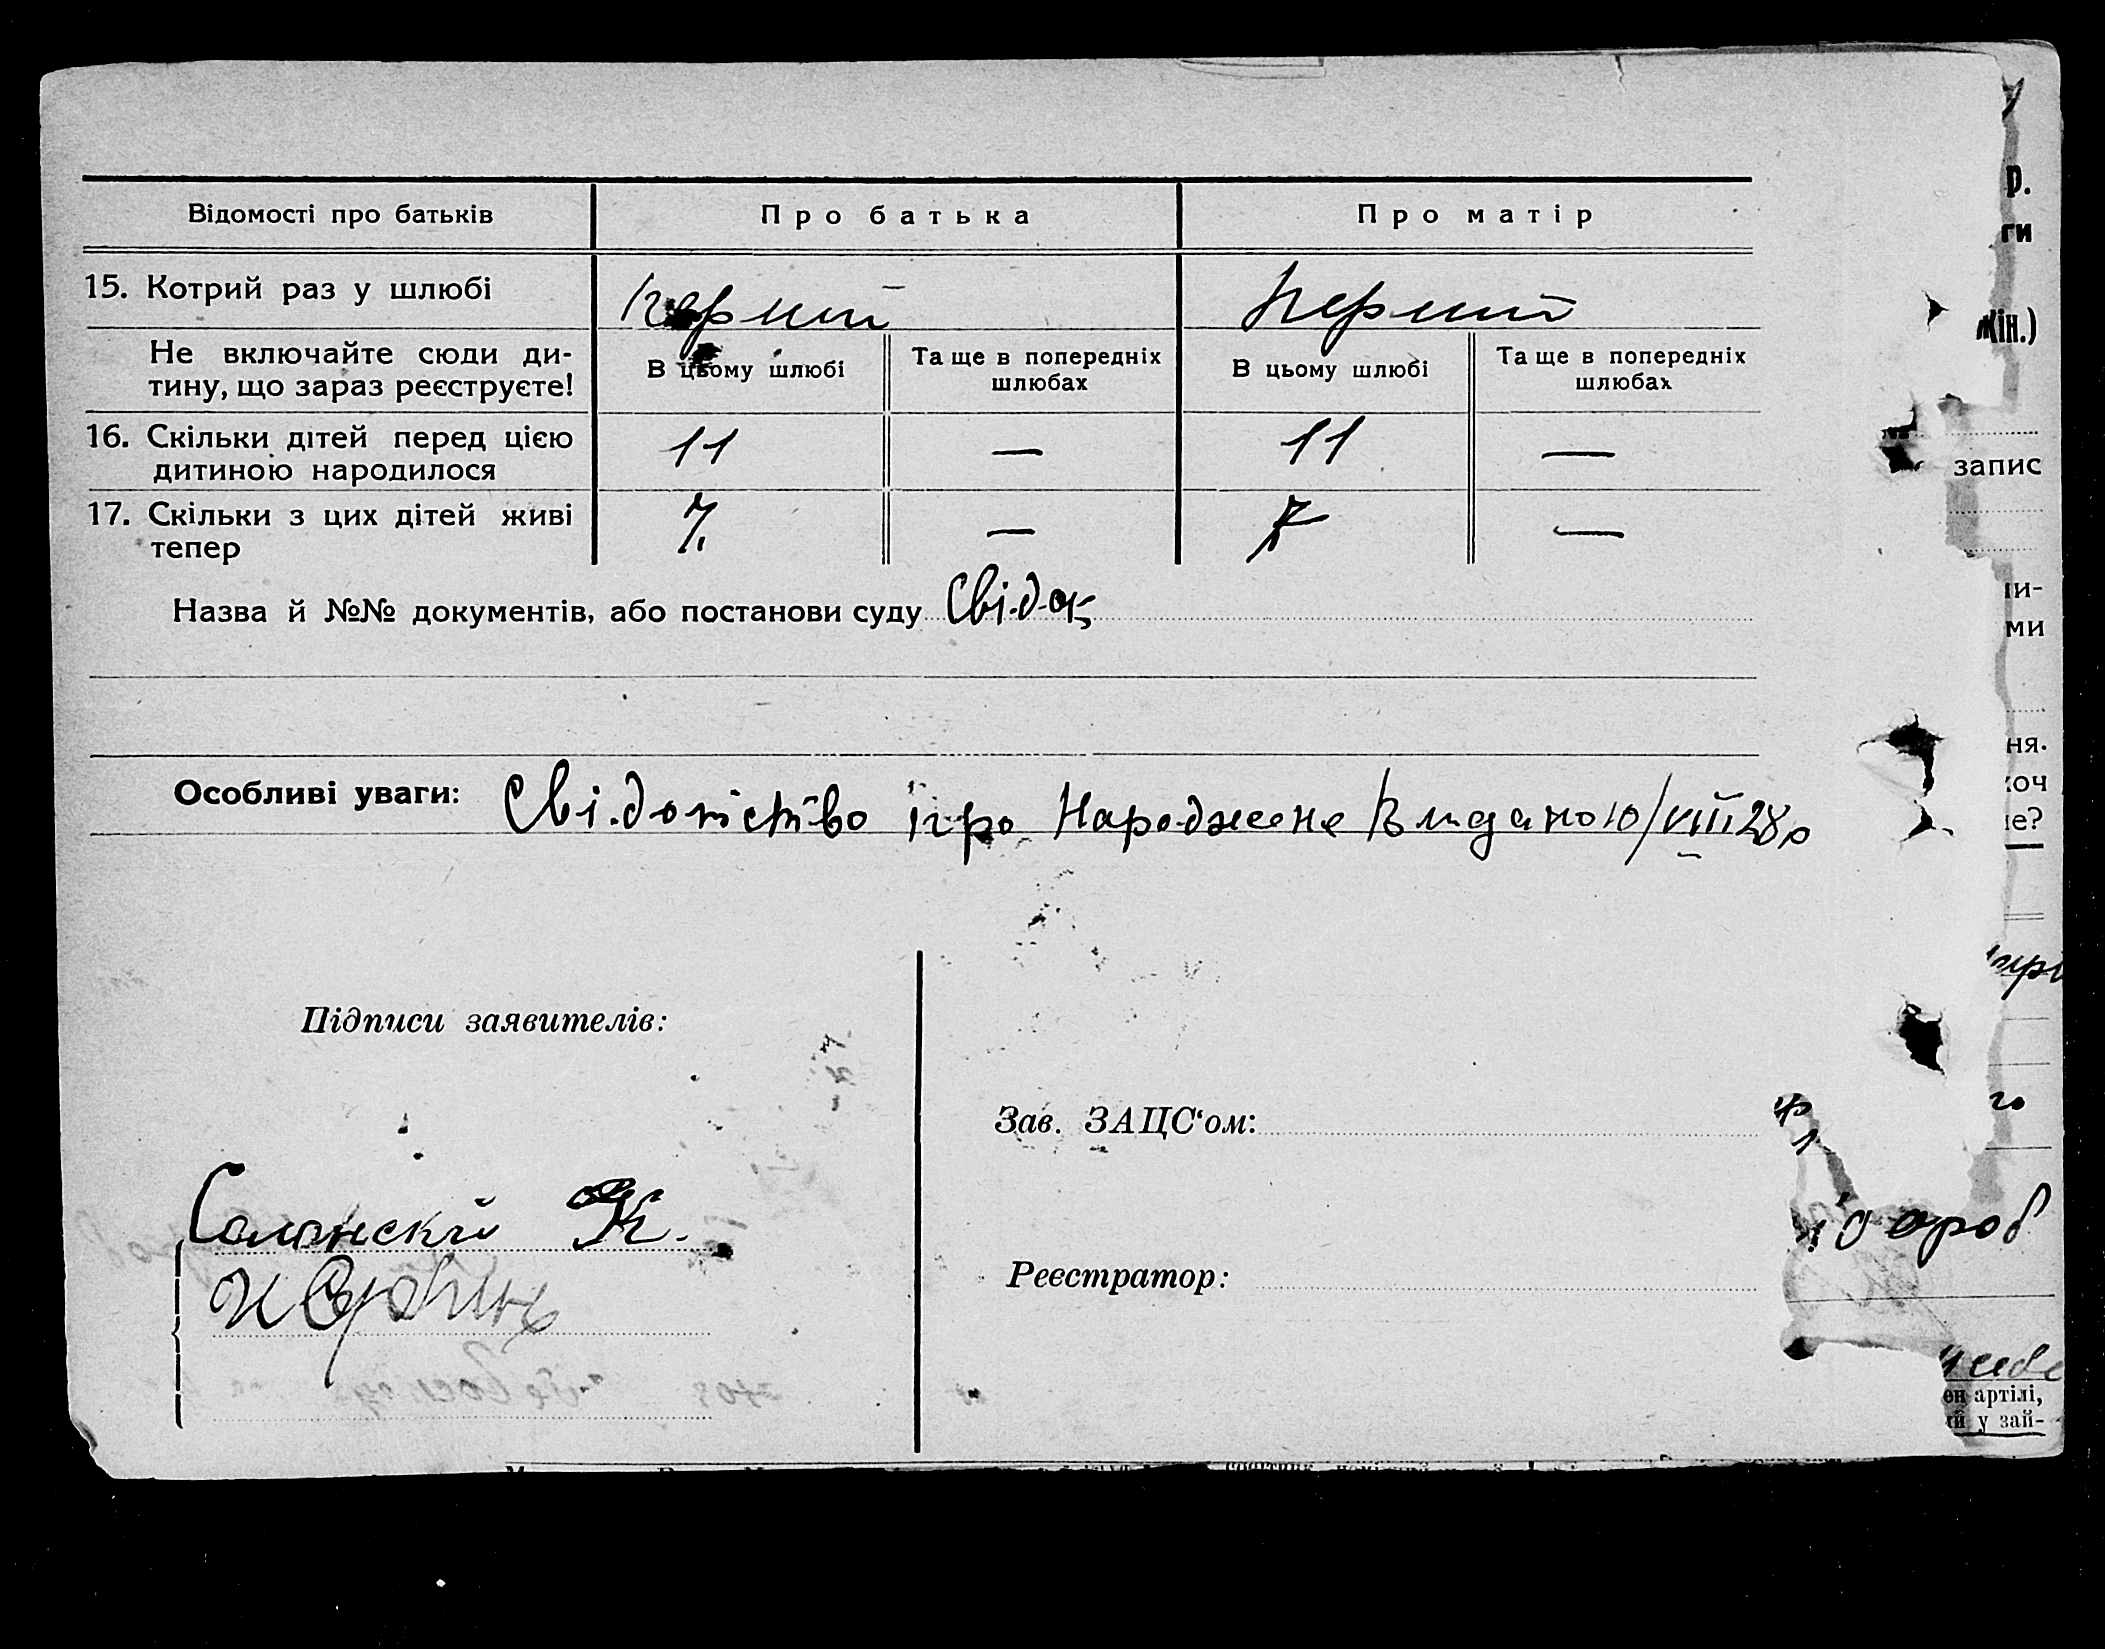 Відомості про батьків Про батька Про матір
15. Котрий раз у шлюбі перший перший
Не включайте сюди ди-
тину, що зараз реєструєте!
В цьому шлюбі Та ще в попередніх
шлюбах В цьому шлюбі Та ще в попередніх
шлюбах
16. Скільки дітей перед цією
дитиною народилося 11 — 11 —
17. Скільки з цих дітей живі
тепер 7. — 7 —
Назва й №№ документів, або постанови суду
Особливі уваги: Свідотство про Народжене Видано 10/VIII 28р
Підписи заявителів:
Зав. ЗАЦС‘ом:
Реєстратор:
р.
ги
запис
ми
ня.
артілі,
у зай-